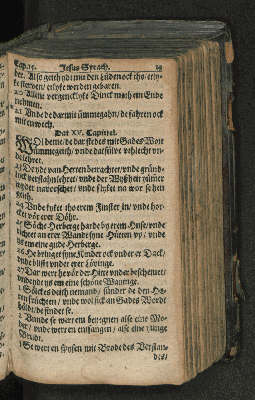 Cap. 15. Jesus Syrach.
ber. Also geith ydt mit den Lüden ock tho/ etly-
ke sterven/ etlyke werden gebaren.
20 Allent vergencklyke Dinck moth ein Ende
nehmen.
21 Unde de darmit ümmegahn/ de fahren ock
mit enwech.
Dat XV. Capittel.
WOl deme/ de dar stedes mit Gades Wort
ümmegeith/ unde dat sülve uthlecht un-
de lehret.
23 De ydt van Herten betrachtet/ unde gründ-
lick verstahn lehret/ unde der Wyßheit ümmer
wyder navorschet/ unde slyket na wor se hen
24 Unde kyket tho erem Finster in/ unde hor-
ket vör erer Döhr.
25 Söcht Herberge hardt by erem Huse/ unde
richtet an erer Wandt syne Hütten up/ unde
ys em eine gude Herberge.
26 He bringet syne Kinder ock under er Dack/
unde blifft under erer Lövinge.
27 Dar wert he vör der Hitte under beschermet/
unde ys em eine schöne Waninge.
1 Sölckes deith nemand/ sünder de den He-
ren früchten/ unde wol sick an Gades Wordt
höldt/ de findet se.
2 Unde se wert em bejegnen alse eine Mo-
der/ unde wert en entfangen/ alse eine junge
Brudt.
3 Se wert en spysen mit Brode des Verstan-